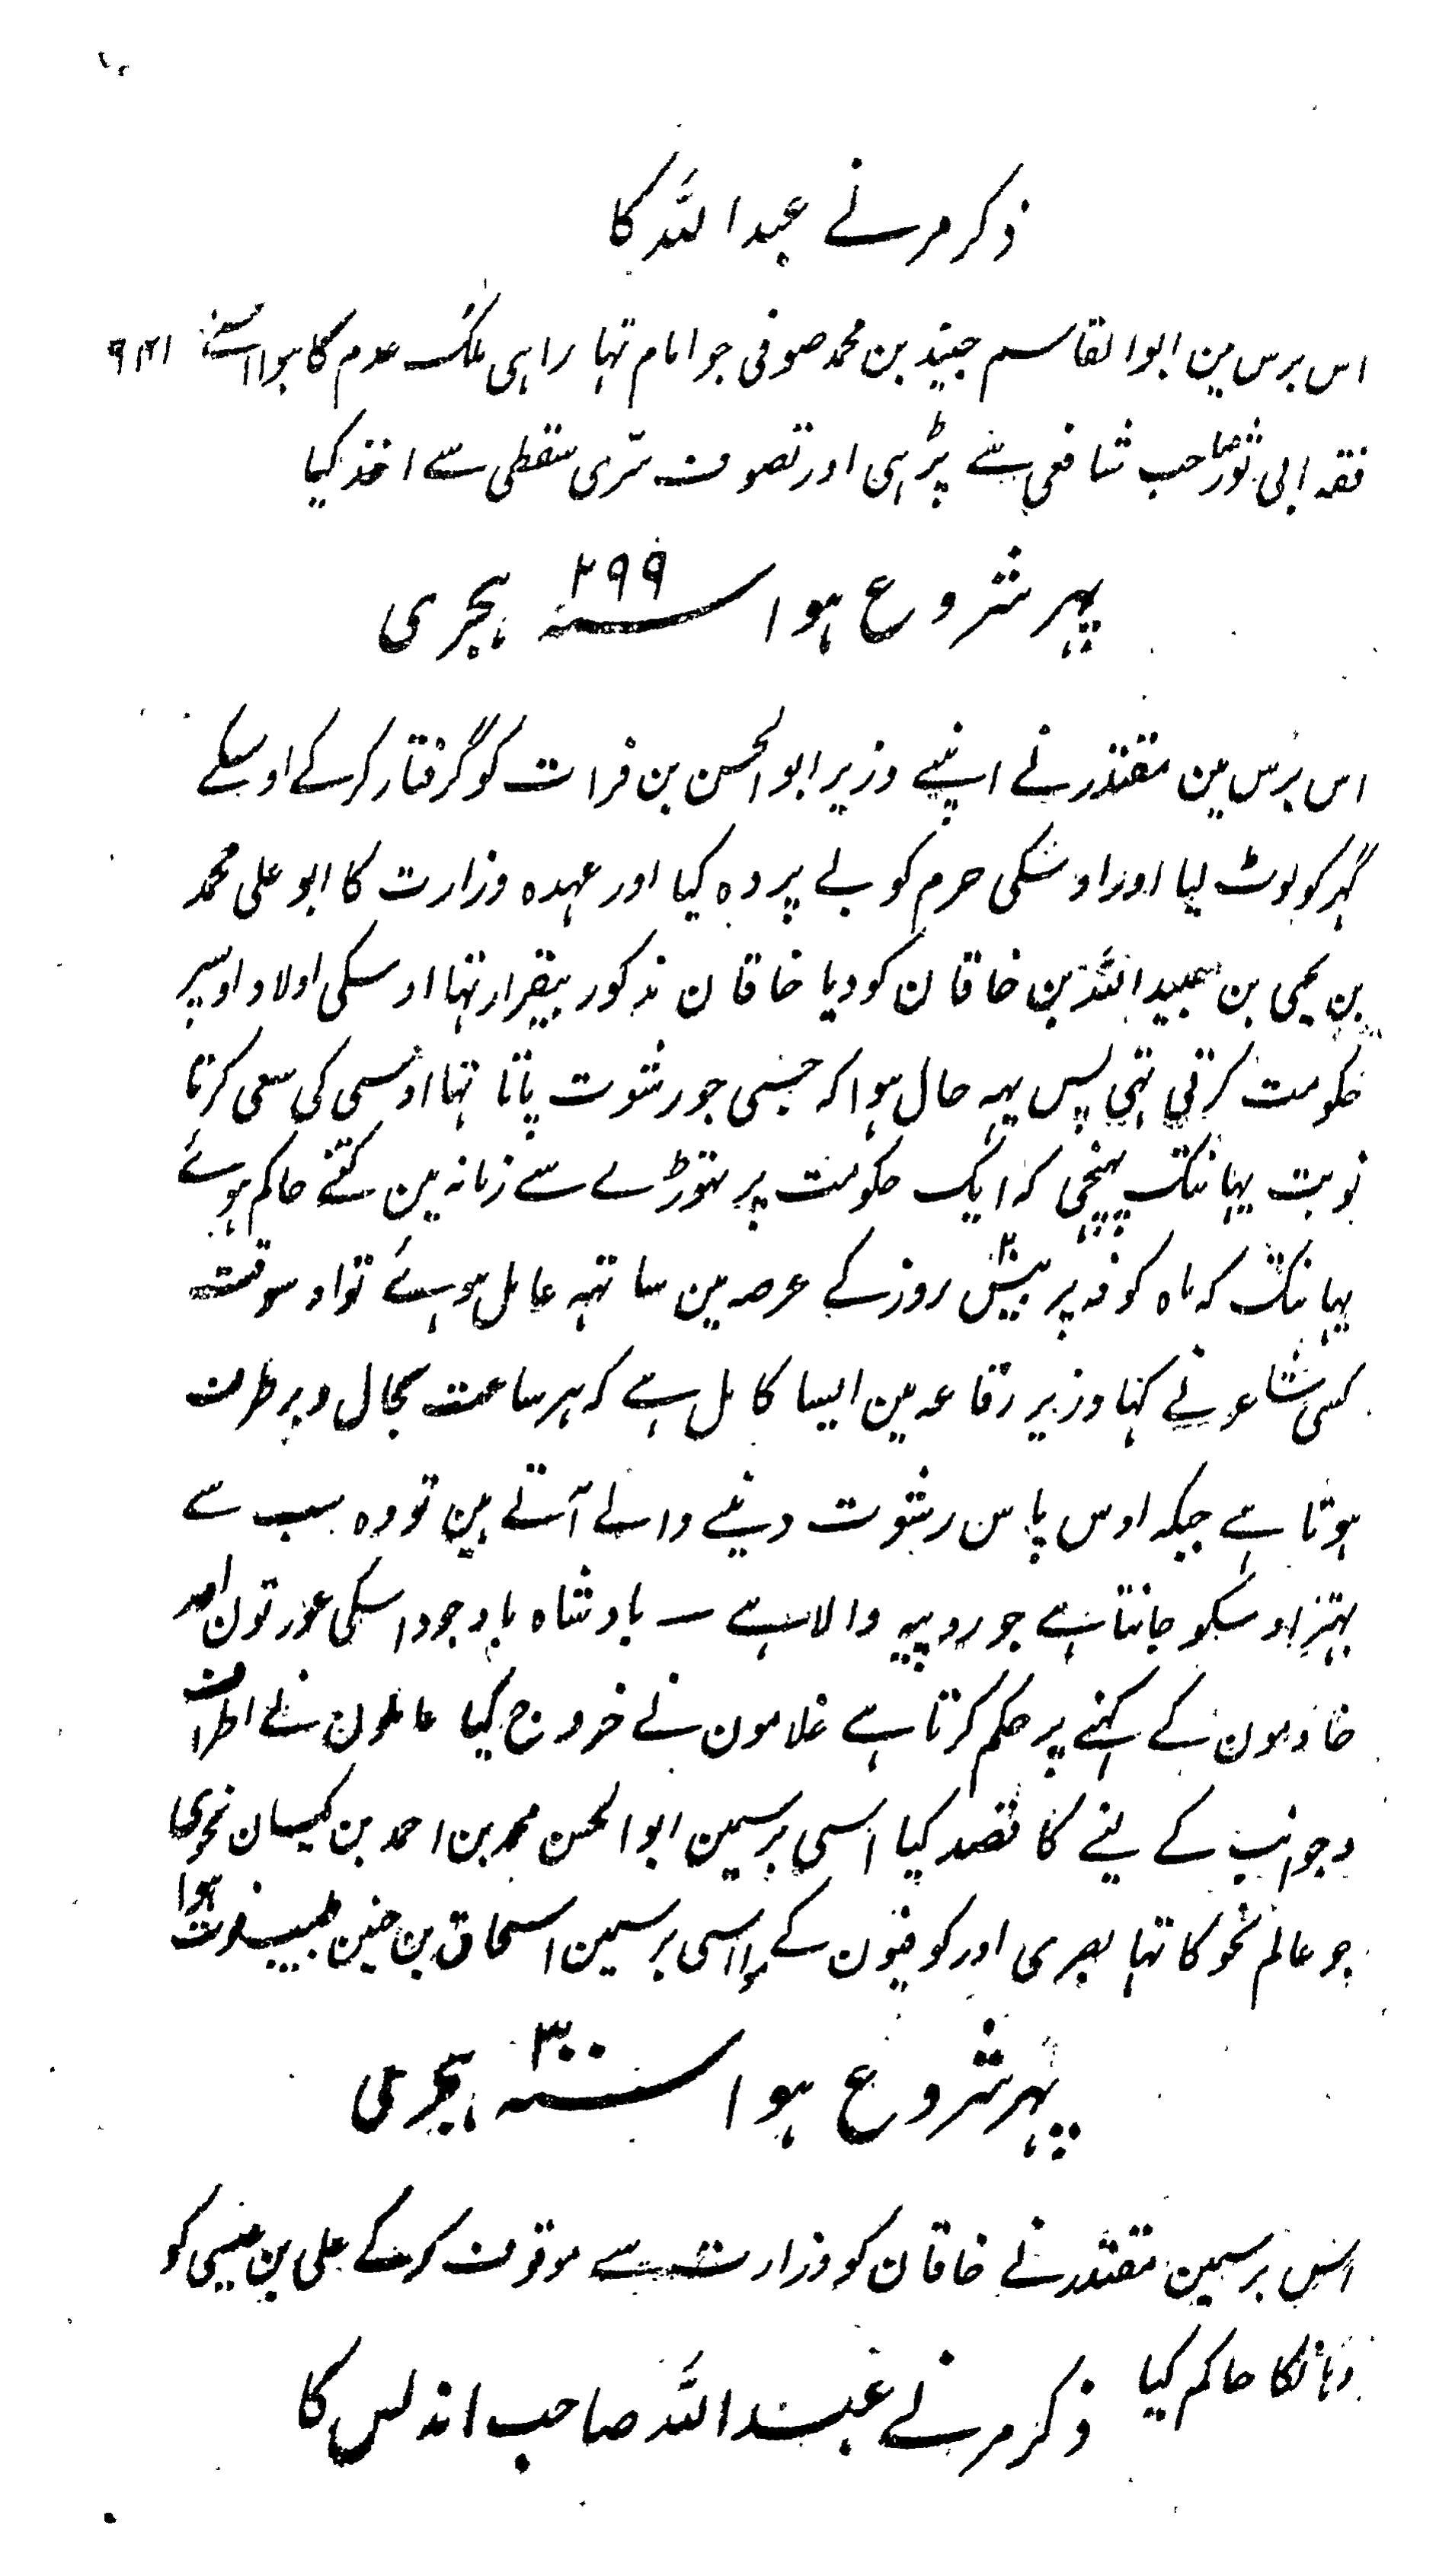 ذکر مرنے عبد اللہ کا
اس برس مین ابو القاسم جنید بن محمد صوفی جو امام تہا راہی ملک عدم کا ہوا اسنے ۹۱۲۱
فقہ ابی ثور صاحب شافعی سے پڑہی اور تصوف سّری سقطی سے اخذ کیا
پہر شروع ہوا سنہ ۲۹۹ ہجری
اس برس مین مقتدر نے اپنے وزیر ابو الحسن بن فرات کو گرفتار کر کے اوسکے
گہر کو لوٹ لیا اور اوسکی حرم کو بے پردہ کیا اور عہدہ وزارت کا ابو علی محمد
بن یحیی بن عبید اللہ بن خاقان کو دیا خاقان مذکور بیقرار تہا اوسکی اولاد اوسپر
حکومت کرتی تہی پس یہہ حال ہوا کہ جسی جو رشوت پاتا تہا اوسی کی سعی کرتا
نوبت یہانتک پہنچی کہ ایک حکومت پر تہوڑے سے زمانہ مین کتنے حاکم ہوئے
یہانتک کہ ماہ کوفہ پر بیس ۲۰ روز کے عرصہ مین ساتہہ عامل ہوئے تو اوسوقت
کسی شاعر نے کہا وزیر رقاعہ مین ایسا کامل ہے کہ ہر ساعت بحال و برطرف
ہوتا ہے جبکہ اوس پاس رشوت دینے والے آتے ہین تو وہ سب سے
بہتر اوسکو جانتا ہے جو روپیہ والا ہے ـ بادشاہ باوجود اسکی عورتون اور
خادمون کے کہنے پر حکم کرتا ہے غلامون نے خروج کیا عاملون نے اطراف
و جوانب کے لینے کا قصد کیا اسی برسمین ابو الحسن محمد بن احمد بن کیسان نحوی
جو عالم نحو کا تہا بصری اور کوفیون کے مرا اسی برسمین اسحاق بن حنین طبیب فوت ہوا
پہر شروع ہوا سنہ ۳۰۰ ہجری
اس برسمین مقتدر نے خاقان کو وزارت سے موقوف کر کے علی بن عیسی کو
وہانکا حاکم کیا
ذکر مرنے عبد اللہ صاحب اندلس کا